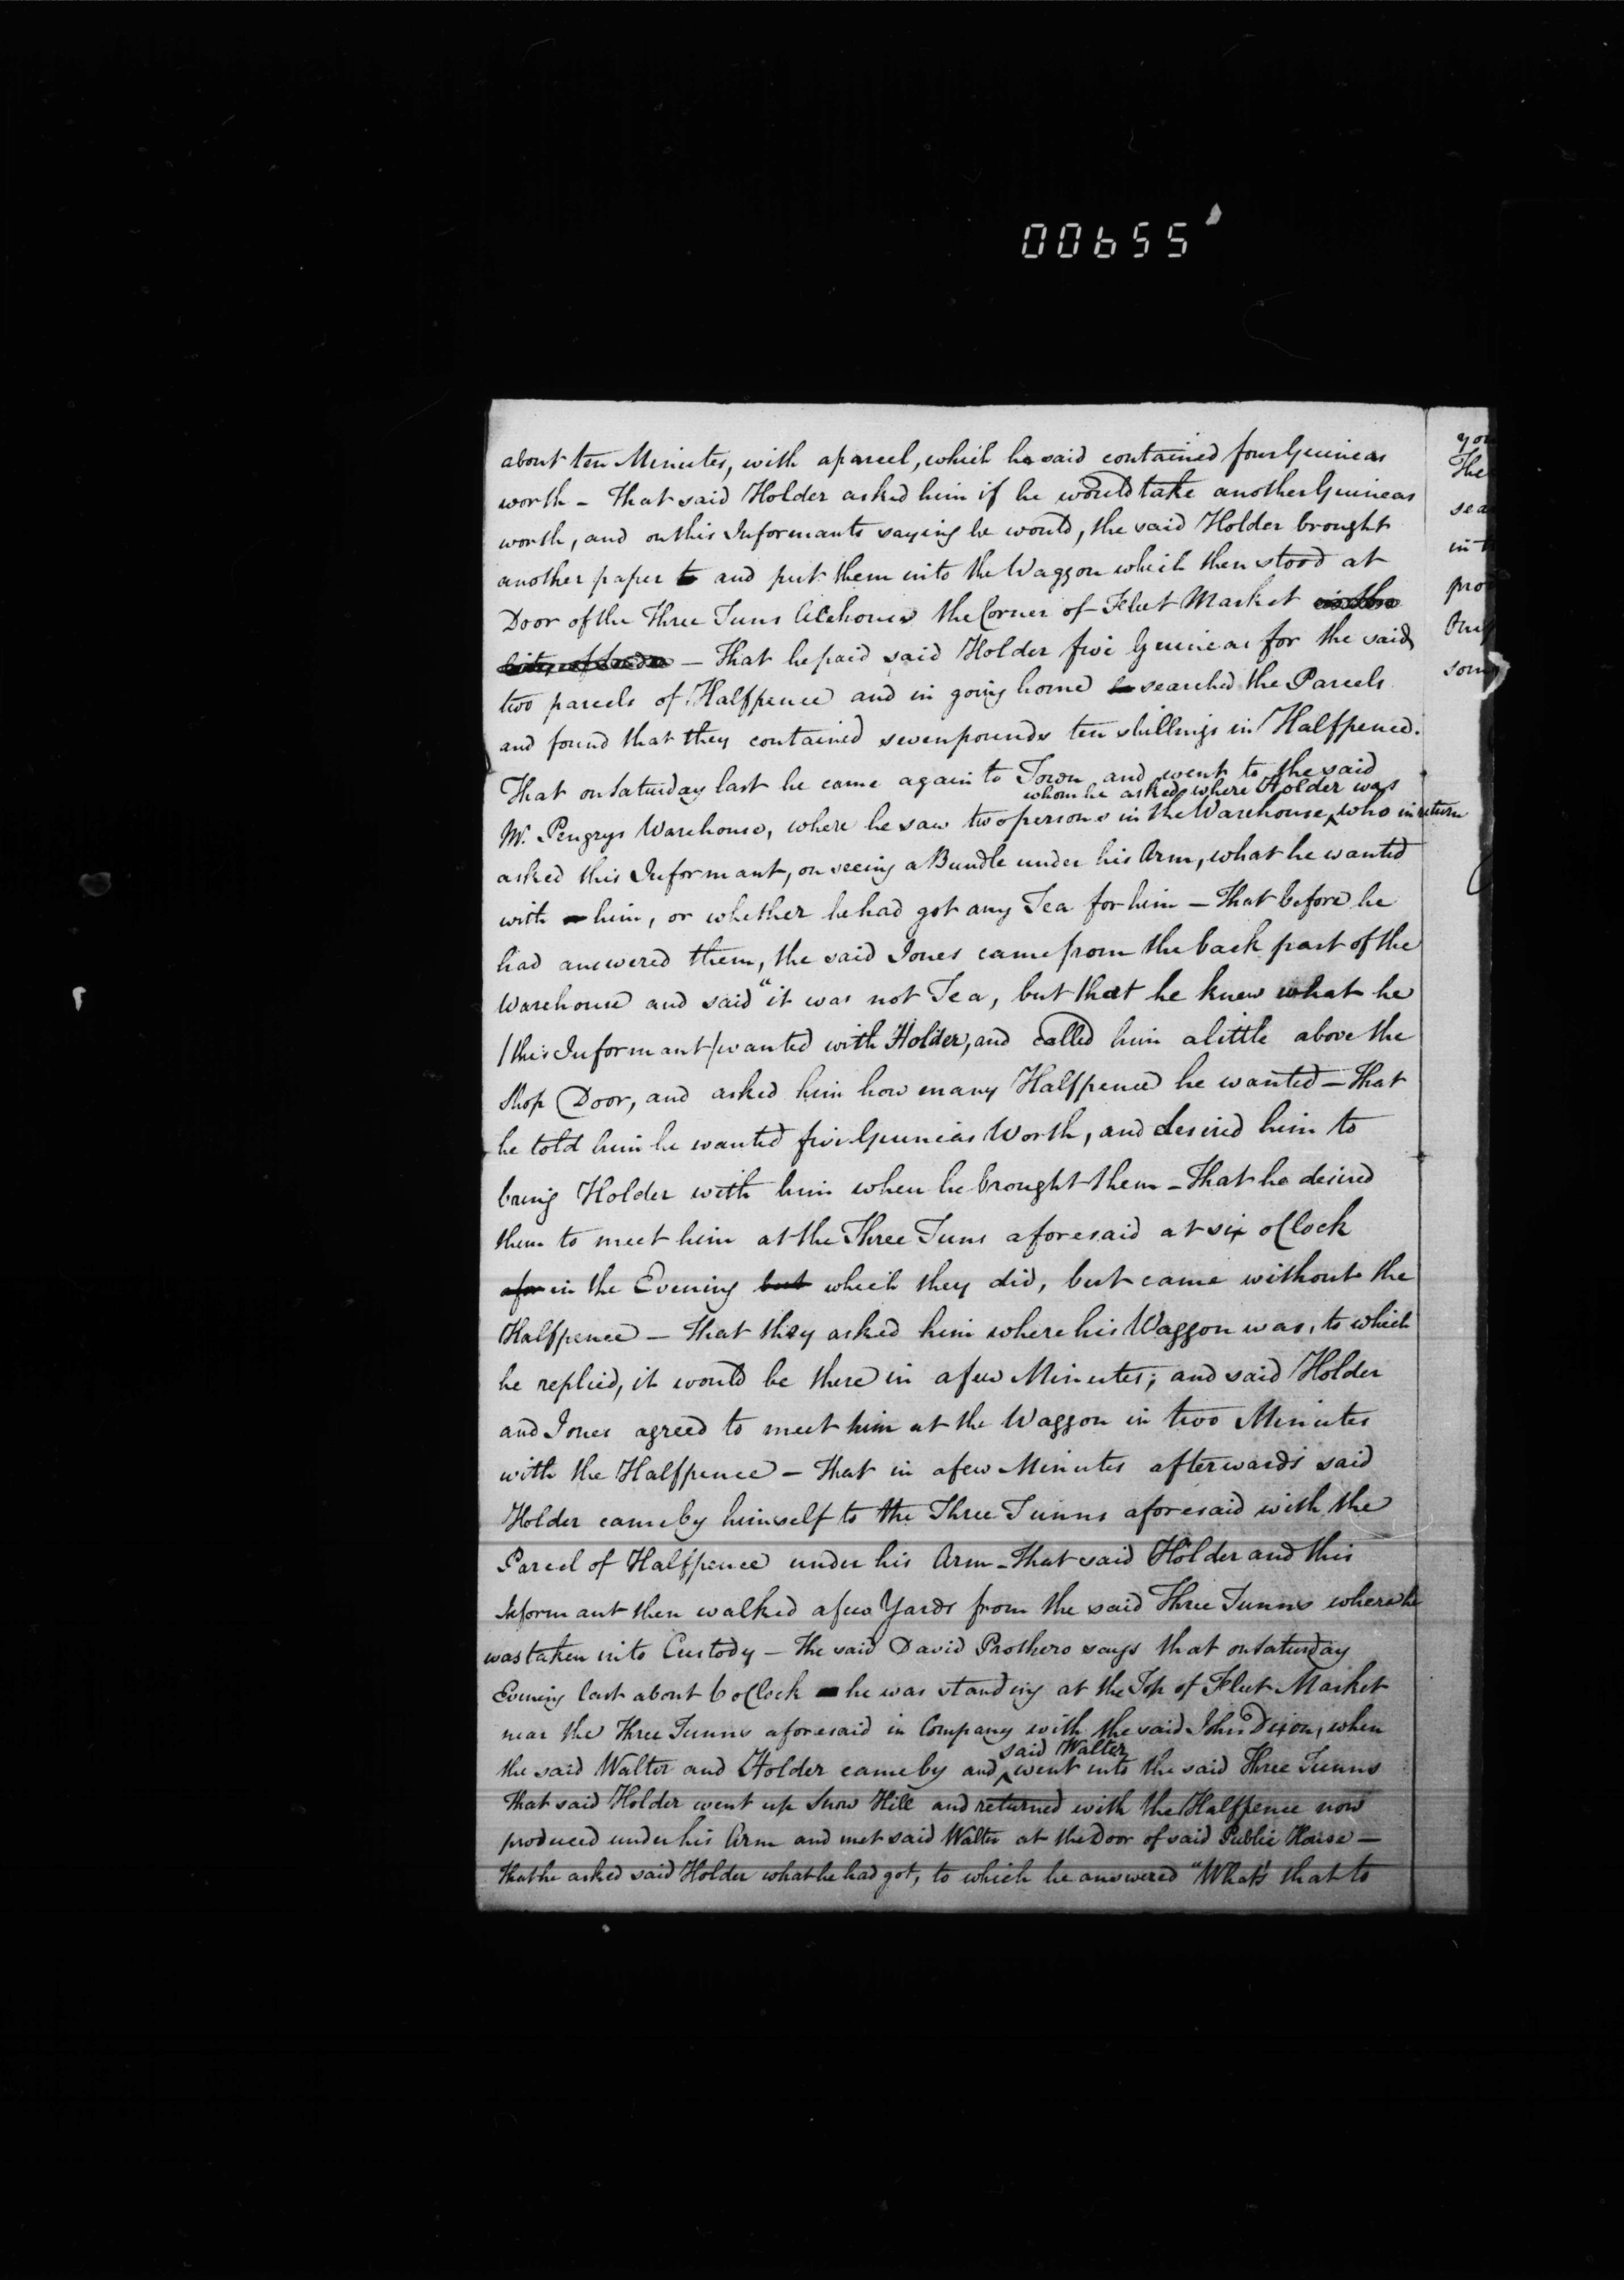 00655
about ten Minutes, with a parcel, which he said contained four Guineas
worth - That said Holder asked him if he would take another Guineas
worth, and on this Informants saying he would, the said Holder brought
another paper to and put them into the Waggon which then stood at
Door of the Three Tuns Alehouse the Corner of Fleet Market in the
City of London - That he paid said Holder five Guineas for the said
two parcels of Halfpence and in going home he searched the Parcels
and found that they contained seven pounds ten shillings in Halfpence.
That on Saturday last he came again to Town and went to the said
whom he asked where Holder was
Mr. Pengrys Warehouse, where he saw two persons in the Warehouse, ^ who in return
asked this Informant, on seeing a Bundle under his Arm, what he wanted
with him, or whether he had got any Tea for him - That before he
had answered them, the said Jones came from the back part of the
Warehouse and said "it was not Tea, but that he knew what he
/this Informant/ wanted with Holder, and called him a little above the
Shop Door, and asked him how many Halfpence he wanted - That
he told him he wanted five Guineas Worth, and desired him to
bring Holder with him when he brought them - That he desired
them to meet him at the Three Tuns aforesaid at six oClock
afor in the Evening but which they did, but came without the
Halfpence - That they asked him where his Waggon was, to which
he replied, it would be there in a few Minutes; and said Holder
and Jones agreed to meet him at the Waggon in two Minutes
with the Halfpence - That in a few Minutes afterwards said
Holder came by himself to the Three Tunns aforesaid with the
Parcel of Halfpence under his Arm - That said Holder and this
Informant then walked a few Yards from the said Three Tunns where he
was taken into Custody - The said David Prothero says that on Saturday
Evening last about 6 oClock he was standing at the Top of Fleet Market
near the Three Tunns aforesaid in Company with the said John Dixon, when
said Walter
the said Walter and Holder came by and ^ went into the said Three Tunns
That said Holder went up Snow Hill and returned with the Halfpence now
produced under his Arm and met said Walter at the Door of said Public House -
That he asked said Holder what he had got, to which he answered "What's that to
you
The
sea
in t
pro
som